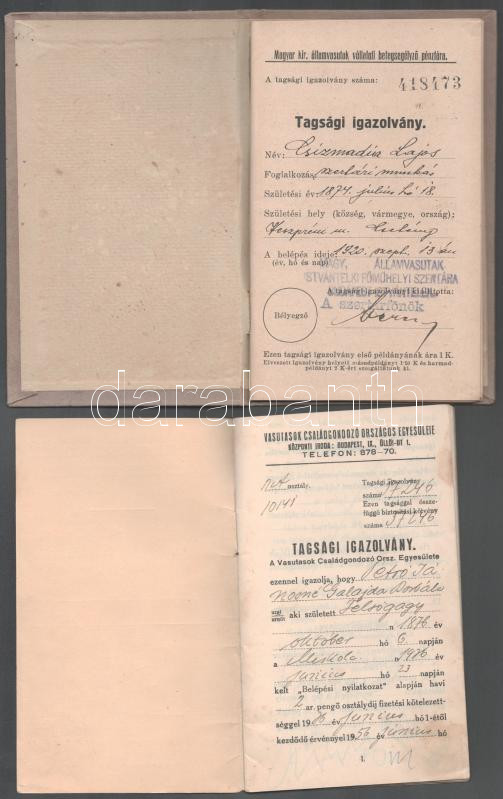 Magyar kir. államvasutak vállalati betegsegélyző pénztára.
A tagsági igazolvány száma: 418473
Tagsági igazolvány.
Név: Csizmadia Lajos
Foglalkozás: szertári munkás
Születési év: 1874. julius hó 18.
Születési hely (község, vármegye, ország):
Veszprém m.
A belépés ideje: 1920. szept. 13 án
(év, hó és nap)
ÁLLAMVASUTAK
ISTVÁNTELKI FŐMŰHELYI SZERTÁRA
A tagsági igazolványt kiállította:
A szertárfőnök
Bélyegző
Ezen tagsági igazolvány első példányának ára 1 K.
Elveszett igazolvány másodpéldányt 1·50 K és harmad-
példányt 2 K-ért szolgáltatunk ki.
darabanth
VASUTASOK CSALÁDGONDOZÓ ORSZÁGOS EGYESÜLETE
KÖZPONTI IRODA: BUDAPEST, IX., ÜLLŐI-UT 1.
TELEFON: 878-70.
osztály.
Tagsági igazolvány
száma 17246
Ezen tagsággal össze-
függő biztosítási kötvény
száma 37246
TAGSÁGI IGAZOLVÁNY.
A Vasutasok Családgondozó Orsz. Egyesülete
ezennel igazolja, hogy Petró Já
nosné Galajda Borbála
aki született Felsőgagy
n 1876 év
október hó 6. napján
a Miskolc 1936 év
junius hó 23 napján
kelt „Belépési nyilatkozat" alapján havi
2 ar. pengő osztálydíj fizetési kötelezett-
séggel 1936 év junius hó 1-étől
kezdődő érvénnyel 1956 év junius hó
1.